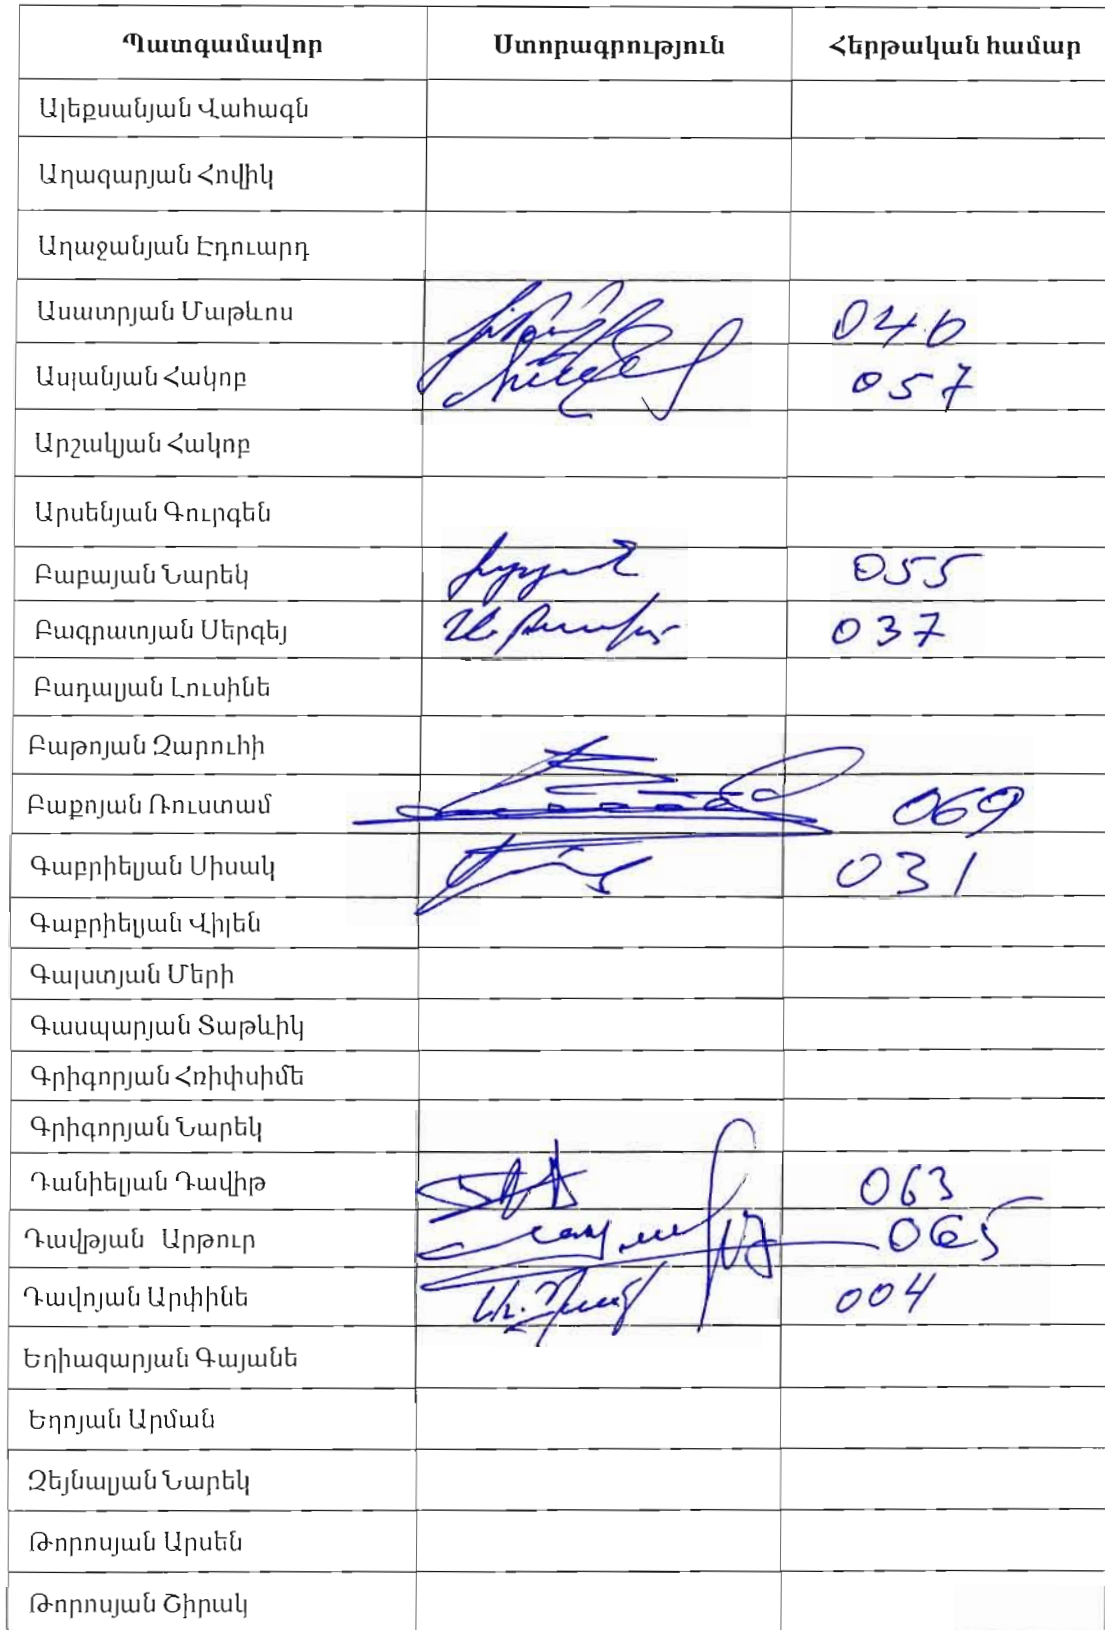 Պատգամավոր Ստորագրություն Հերթական համար
Ալեքսանյան Վահագն
Աղազարյան Հովիկ
Աղաջանյան Էդուարդ
Ասատրյան Մաթևոս 040
Ասլանյան Հակոբ 057
Արշակյան Հակոբ
Արսենյան Գուրգեն
Բաբայան Նարեկ 055
Բագրատյան Սերգեյ 037
Բադալյան Լուսինե
Բաթոյան Զարուհի
Բաքոյան Ռուստամ 069
Գաբրիելյան Սիսակ 031
Գաբրիելյան Վիլեն
Գալստյան Մերի
Գասպարյան Տաթևիկ
Գրիգորյան Հռիփսիմե
Գրիգորյան Նարեկ
Դանիելյան Դավիթ 063
Դավթյան Արթուր 065
Դավոյան Արփինե 004
Եղիազարյան Գայանե
Եղոյան Արման
Զեյնալյան Նարեկ
Թորոսյան Արսեն
Թորոսյան Շիրակ